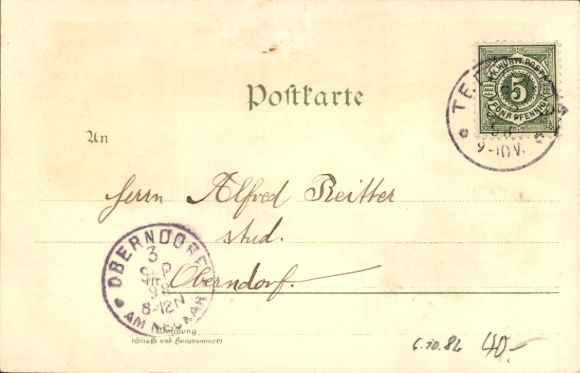 Postkarte
K. WÜRTT. POST
5
FÜNF PFENNIG
9-10V.
An
Herrn Alfred Reitter
stud.
in Oberndorf.
OBERNDORF
3
SEP
8-12N
AM NECKAR
Wohnung
(Straße und Hausnummer)
6.10.82 40.-